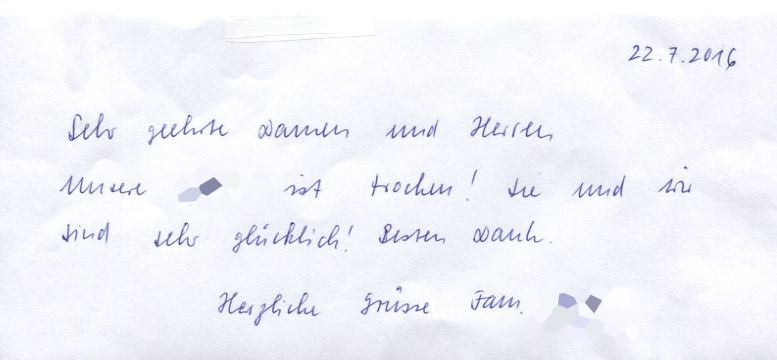 22.7.2016
Sehr geehrte Damen und Herren
Unsere ist trocken! Sie und wir
sind sehr glücklich! Besten Dank.
Herzliche Grüsse Fam.